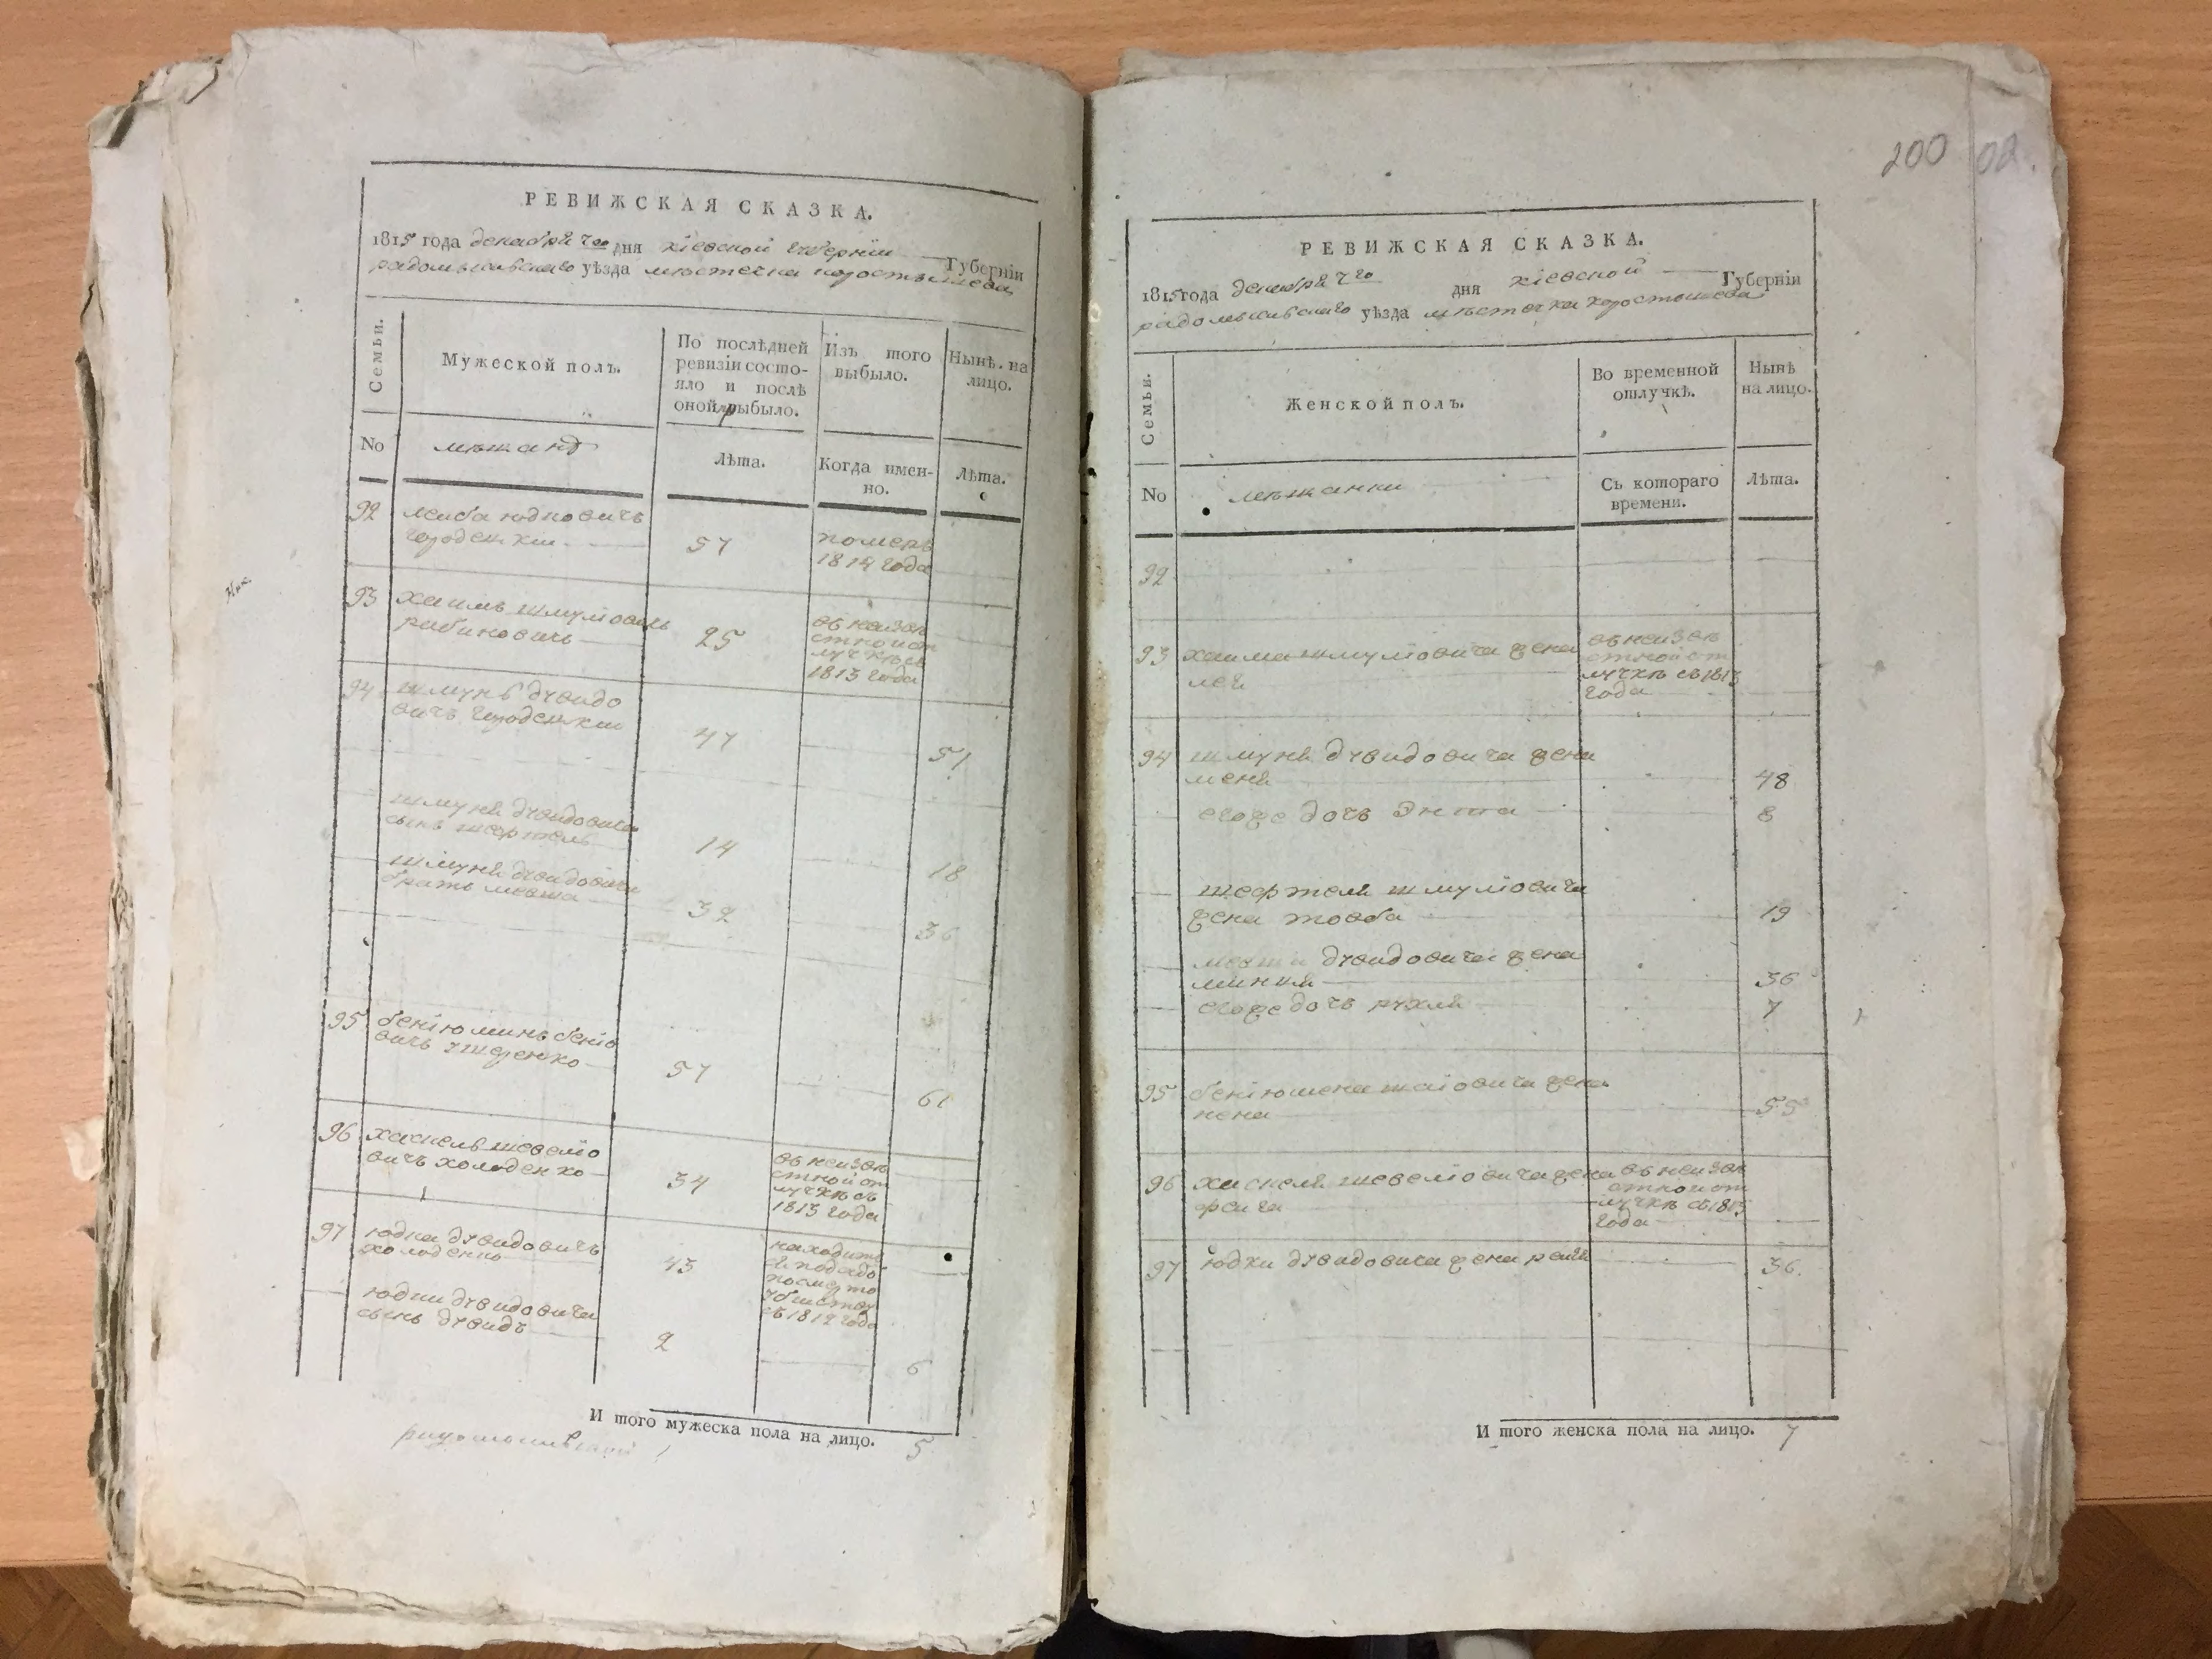 РЕВИЖСКАЯ СКАЗКА.
1815 года декабря 7го дня кіевской губерніи Губерніи
радомысльскаго уѣзда мѣстечка коростышева
Семьи.
Мужеской полъ.
По послѣдней
ревизіи состо-
яло и послѣ
оной прибыло.
Изъ того
выбыло.
Нынѣ на
лицо.
No
мѣщанъ
Лѣта.
Когда имен-
но.
Лѣта.
92 лейба юдковичъ
57
померъ
1814 года
93 хаимъ шмуліовичь
рабиновичь
25
въ неизвѣ
стной от
лучкѣ съ
1813 года
94 шмуль двидо
вичъ
47
51
шмуля двидовича
сынъ шефтель
14
18
шмуля двидовича
братъ мовша
32
36
95 беніюминъ
вичъ
57
61
96 хаскель шевеліо
вичъ холоденко
34
въ неизвѣ
стной от
лучкѣ съ
1813 года
97 юдка двидовичъ
холоденко
43
находитс
съ 1812 года
юдки двидовича
сынъ двидъ
2
6
И того мужеска пола на лицо. 5
200
РЕВИЖСКАЯ СКАЗКА.
1815 года декабря 7го дня кіевской Губерніи
радомысльскаго уѣзда мѣстечка коростышева
Семьи.
Женской полъ.
Во временной
отлучкѣ.
Нынѣ
на лицо.
No
мѣщанки
Съ котораго
времени.
Лѣта.
92
93 хаима шмуліовича жена
лея
въ неизвѣ
стной от
лучкѣ съ 1813
года
94 шмуля двидовича жена
48
егоже дочь Энта
8
шефтеля шмуліовича
жена товба
19
мовши двидовича жена
36
егоже дочь рухля
7
95 беніюмена шаіовича жена
55
96 хаскеля шевеліовича жена
фейга
въ неизвѣ
стной от
лучкѣ съ 1813
года
97 юдки двидовича жена
36.
И того женска пола на лицо. 7